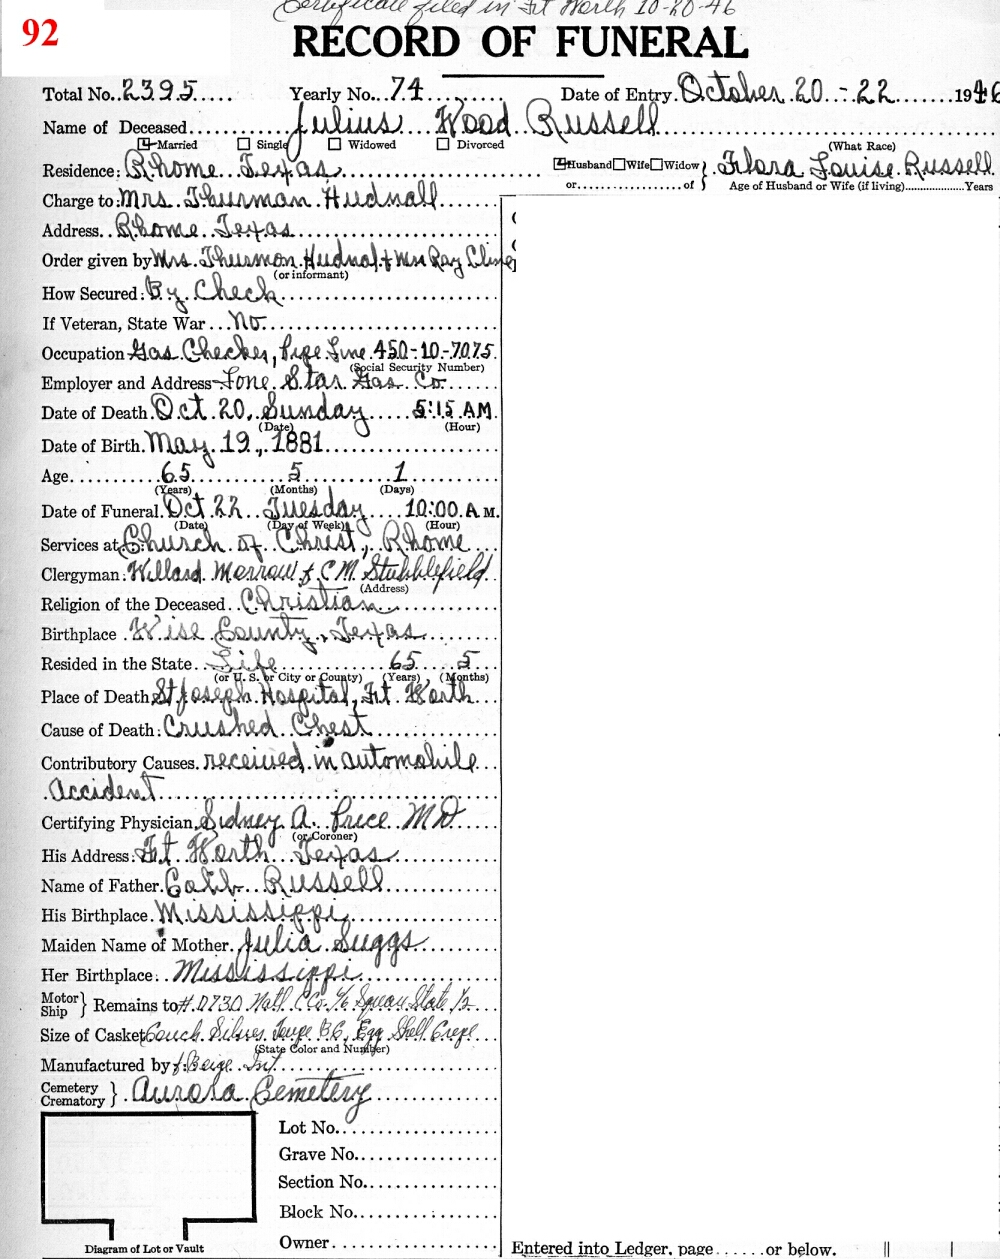 Certificate filed in Ft Worth 10-20-46
92
RECORD OF FUNERAL
Total No. 2395 Yearly No. 74 Date of Entry October 20 - 22 1946
Name of Deceased Julius Wood Russell
Married Single Widowed Divorced (What Race)
Residence: Rhome Texas Husband Wife Widow or of Flora Louise Russell
Age of Husband or Wife (if living) Years
Charge to: Mrs. Thurman Hudnall
Address Rhome Texas
Order given by Mrs. Thurmon Hudnal + Mrs Ray Cline
(or informant)
How Secured: By Check
If Veteran, State War No.
Occupation Gas Checker, Pipe Line 450-10-7075
(Social Security Number)
Employer and Address Lone Star Gas Co
Date of Death Oct. 20, Sunday 5:15 AM
(Date) (Hour)
Date of Birth May 19, 1881
Age 65 5 1
(Years) (Months) (Days)
Date of Funeral Oct 22 Tuesday 10:00 A.M.
(Date) (Day of Week) (Hour)
Services at Church of Christ, Rhome
Clergyman: Willard Morrow & C M Stubblefield
(Address)
Religion of the Deceased Christian
Birthplace Wise County, Texas
Resided in the State Life 65 5
(or U. S. or City or County) (Years) (Months)
Place of Death St Joseph Hospital, Ft. Worth
Cause of Death: Crushed Chest
Contributory Causes received in automobile
Accident
Certifying Physician Sidney A. Price MD
(or Coroner)
His Address: Ft Worth Texas
Name of Father Russell
His Birthplace Mississippi
Maiden Name of Mother Julia Suggs
Her Birthplace: Mississippi
Motor Ship } Remains to # 0730 Natl C Co. Square State
Size of Casket Couch Silver B6, Egg Shell Crepe
(State Color and Number)
Manufactured by Beige Int
Cemetery Crematory } Aurora Cemetery
Lot No.
Grave No.
Section No.
Block No.
Diagram of Lot or Vault
Owner
Entered into Ledger, page or below.